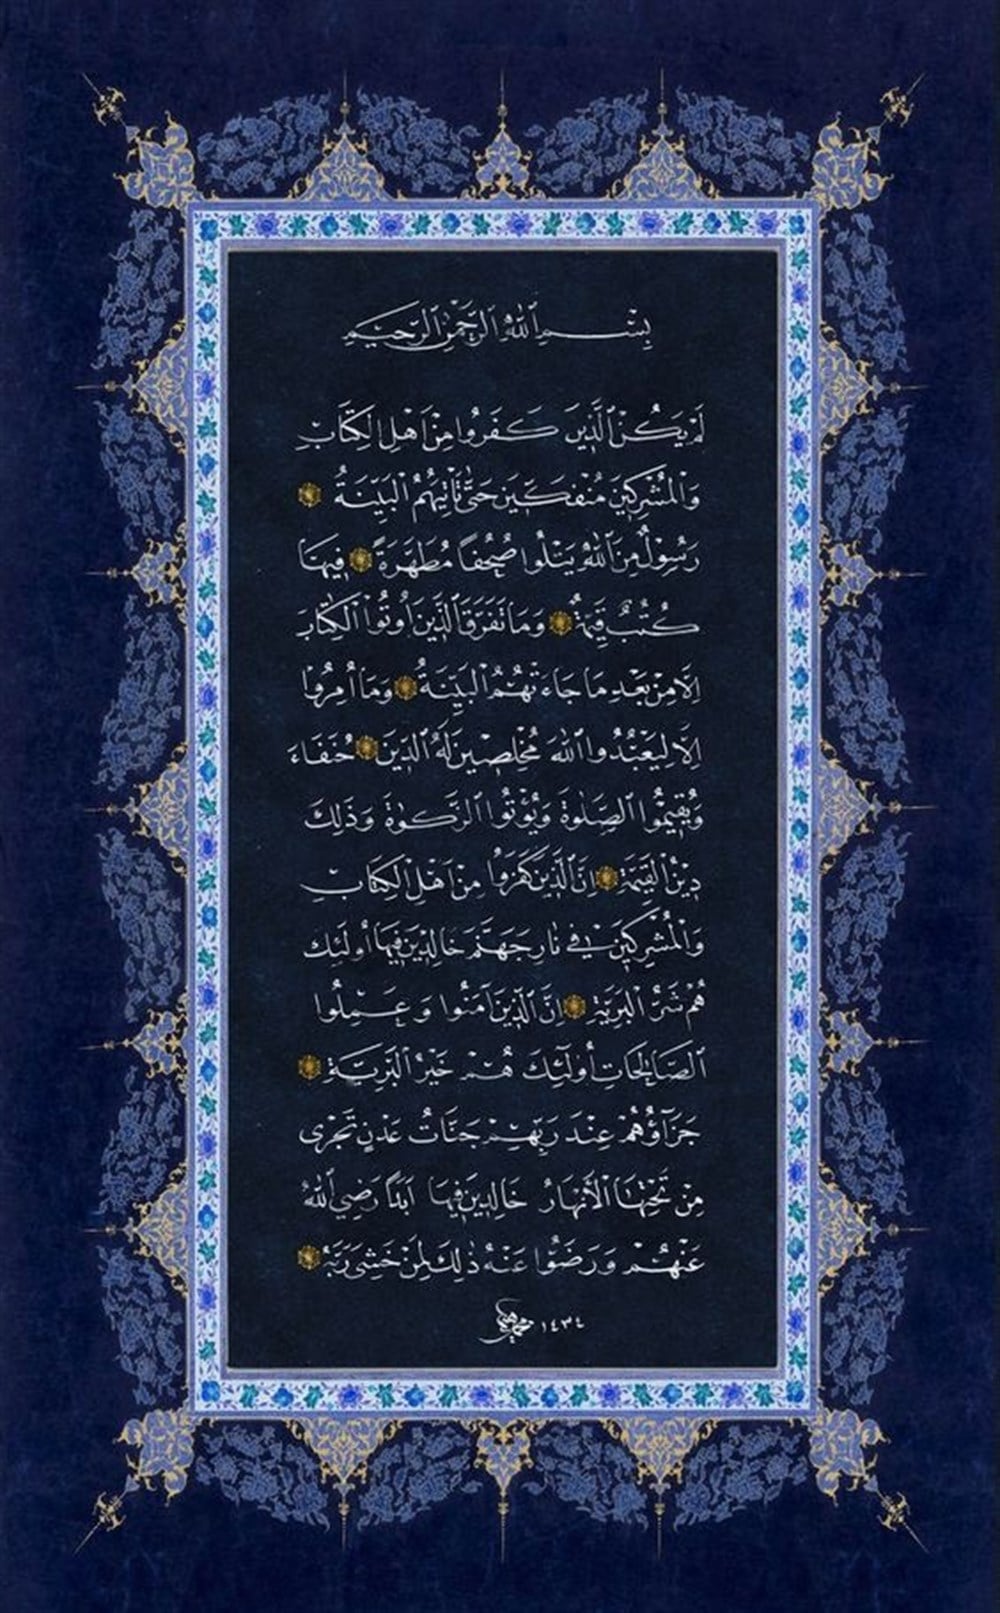 بِسْمِ ٱللّٰهِ ٱلرَّحْمٰنِ ٱلرَّحِيمِ
لَمْ يَكُنِ ٱلَّذِينَ كَفَرُوا مِنْ اَهْلِ الْكِتَابِ
وَالْمُشْرِكِينَ مُنْفَكِّينَ حَتّٰى تَاْتِيَهُمُ الْبَيِّنَةُ
رَسُولٌ مِنَ ٱللّٰهِ يَتْلُوا صُحُفًا مُطَهَّرَةً فِيهَا
كُتُبٌ قَيِّمَةٌ وَمَا تَفَرَّقَ الَّذِينَ اُوتُوا الْكِتَابَ
اِلَّا مِنْ بَعْدِ مَا جَاءَتْهُمُ الْبَيِّنَةُ وَمَا اُمِرُوا
اِلَّا لِيَعْبُدُوا ٱللّٰهَ مُخْلِصِينَ لَهُ الدِّينَ حُنَفَاءَ
وَيُقِيمُوا الصَّلٰوةَ وَيُؤْتُوا الزَّكٰوةَ وَذٰلِكَ
دِينُ الْقَيِّمَةِ اِنَّ الَّذِينَ كَفَرُوا مِنْ اَهْلِ الْكِتَابِ
وَالْمُشْرِكِينَ فِي نَارِ جَهَنَّمَ خَالِدِينَ فِيهَا اُولٰئِكَ
هُمْ شَرُّ الْبَرِيَّةِ اِنَّ الَّذِينَ آمَنُوا وَعَمِلُوا
الصَّالِحَاتِ اُولٰئِكَ هُمْ خَيْرُ الْبَرِيَّةِ
جَزَاؤُهُمْ عِنْدَ رَبِّهِمْ جَنَّاتُ عَدْنٍ تَجْرِى
مِنْ تَحْتِهَا الْاَنْهَارُ خَالِدِينَ فِيهَا اَبَدًا رَضِيَ ٱللّٰهُ
عَنْهُمْ وَرَضُوا عَنْهُ ذٰلِكَ لِمَنْ خَشِىَ رَبَّهُ
١٤٣٤